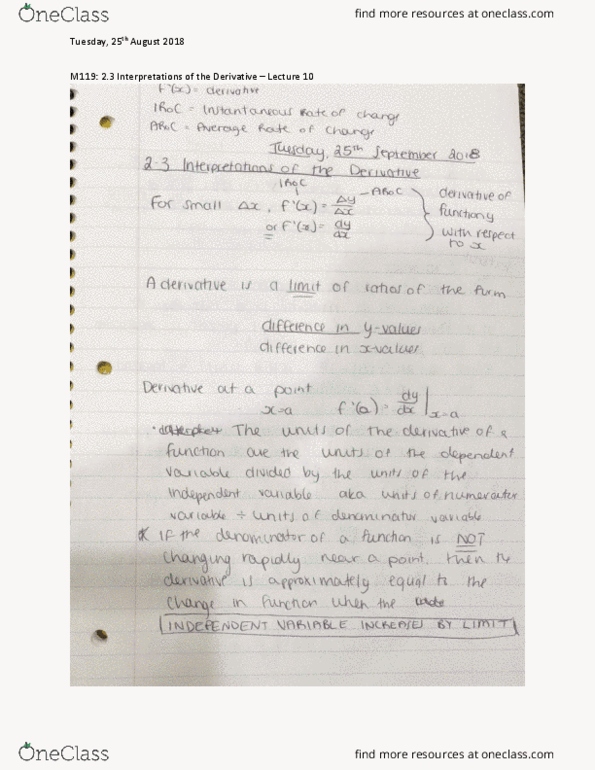 OneClass
find more resources at oneclass.com
Tuesday, 25th August 2018
M119: 2.3 Interpretations of the Derivative – Lecture 10
f'(x) = derivative
IRoC = Instantaneous Rate of change
ARoC = Average Rate of Change
Tuesday, 25th September 2018
2.3 Interpretations of the Derivative
IRoC
For small Δx, f'(x) = Δy/Δx – ARoC
or f'(x) = dy/dx
derivative of
function y
with respect
to x
A derivative is a limit of ratios of the form
difference in y-values
difference in x-values
Derivative at a point
x=a f'(a) = dy/dx | x=a
· The units of the derivative of a
function are the units of the dependent
variable divided by the units of the
independent variable aka units of numerator
variable ÷ units of denominator variable
* IF the denominator of a function is NOT
changing rapidly near a point, then the
derivative is approximately equal to the
change in function when the
INDEPENDENT VARIABLE INCREASES BY 1 UNIT
OneClass
find more resources at oneclass.com